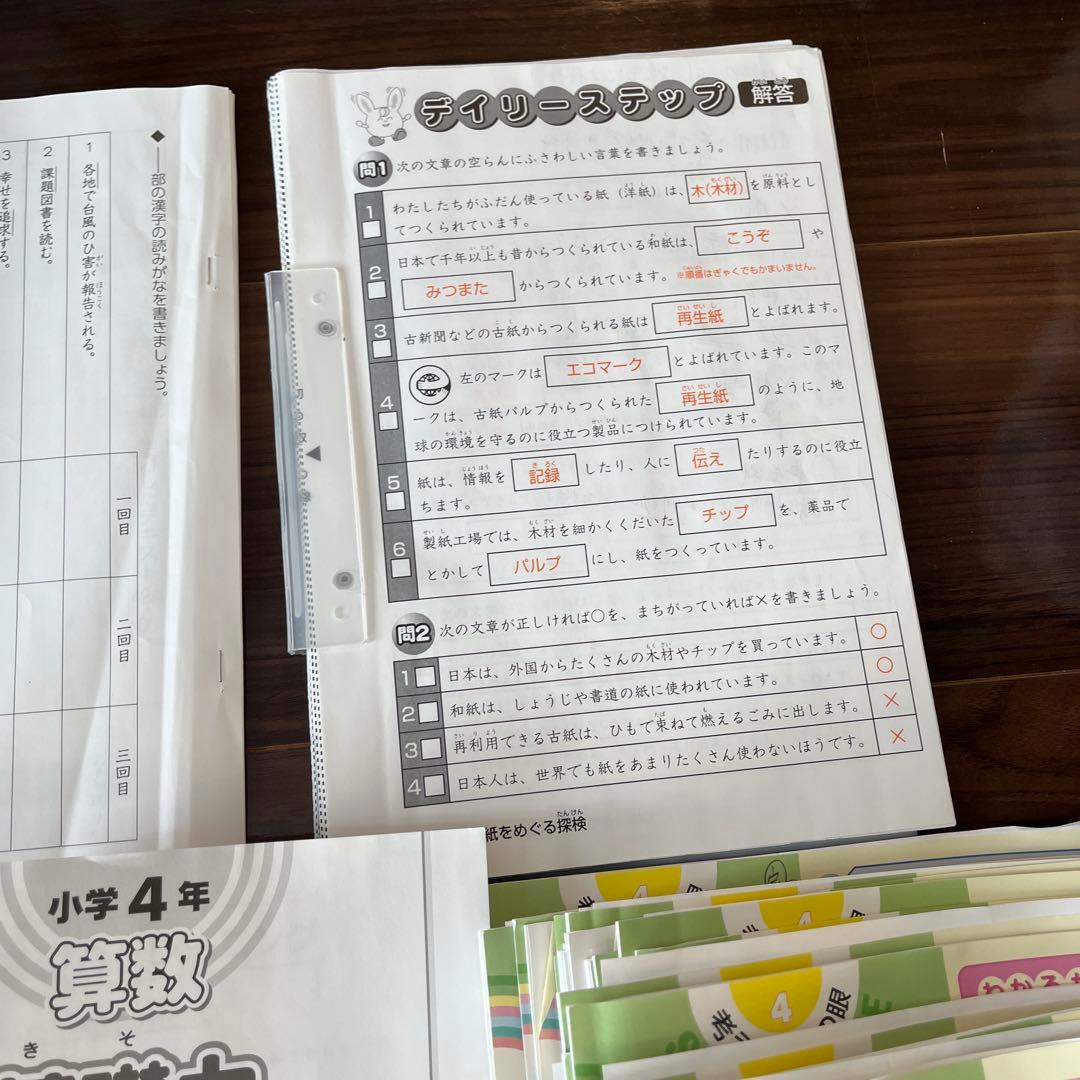 デイリーステップ 解答
問1 次の文章の空らんにふさわしい言葉を書きましょう。
1 わたしたちがふだん使っている紙(洋紙)は、木(木材)を原料とし
てつくられています。
2 日本で千年以上も昔からつくられている和紙は、こうぞや
みつまたからつくられています。※順番はぎゃくでもかまいません。
3 古新聞などの古紙からつくられる紙は再生紙とよばれます。
4 左のマークはエコマークとよばれています。このマ
ークは、古紙パルプからつくられた再生紙のように、地
球の環境を守るのに役立つ製品につけられています。
5 紙は、情報を記録したり、人に伝えたりするのに役立
ちます。
6 製紙工場では、木材を細かくくだいたチップを、薬品で
とかしてパルプにし、紙をつくっています。
問2 次の文章が正しければ○を、まちがっていれば×を書きましょう。
1 日本は、外国からたくさんの木材やチップを買っています。 ○
2 和紙は、しょうじや書道の紙に使われています。 ○
3 再利用できる古紙は、ひもで束ねて燃えるごみに出します。 ×
4 日本人は、世界でも紙をあまりたくさん使わないほうです。 ×
紙をめぐる探検
◆
部の漢字の読みがなを書きましょう。
1 各地で台風のひ害が報告される。
2 課題図書を読む。
3 幸せを追求する。
一回目
二回目
三回目
小学4年
算数
きそ
4
4
4
の眼
わかる